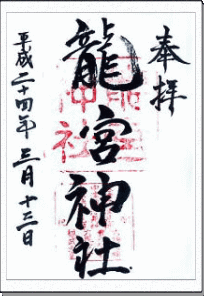 奉拝
龍宮神社
平成二十四年 三月十三日